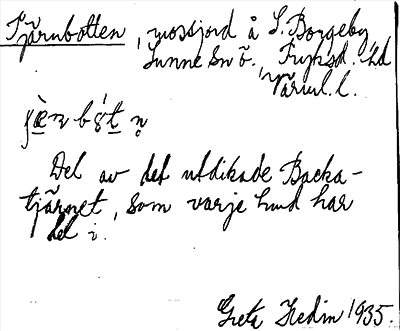 Tjärnbotten, mossjord å S. Borgeby
Sunne sn Ö., Fryksd. hd
Värml. l.
Del av det utdikade Backa-
tjärnet, som varje hmd har
del i.
Greta Hedin 1935.